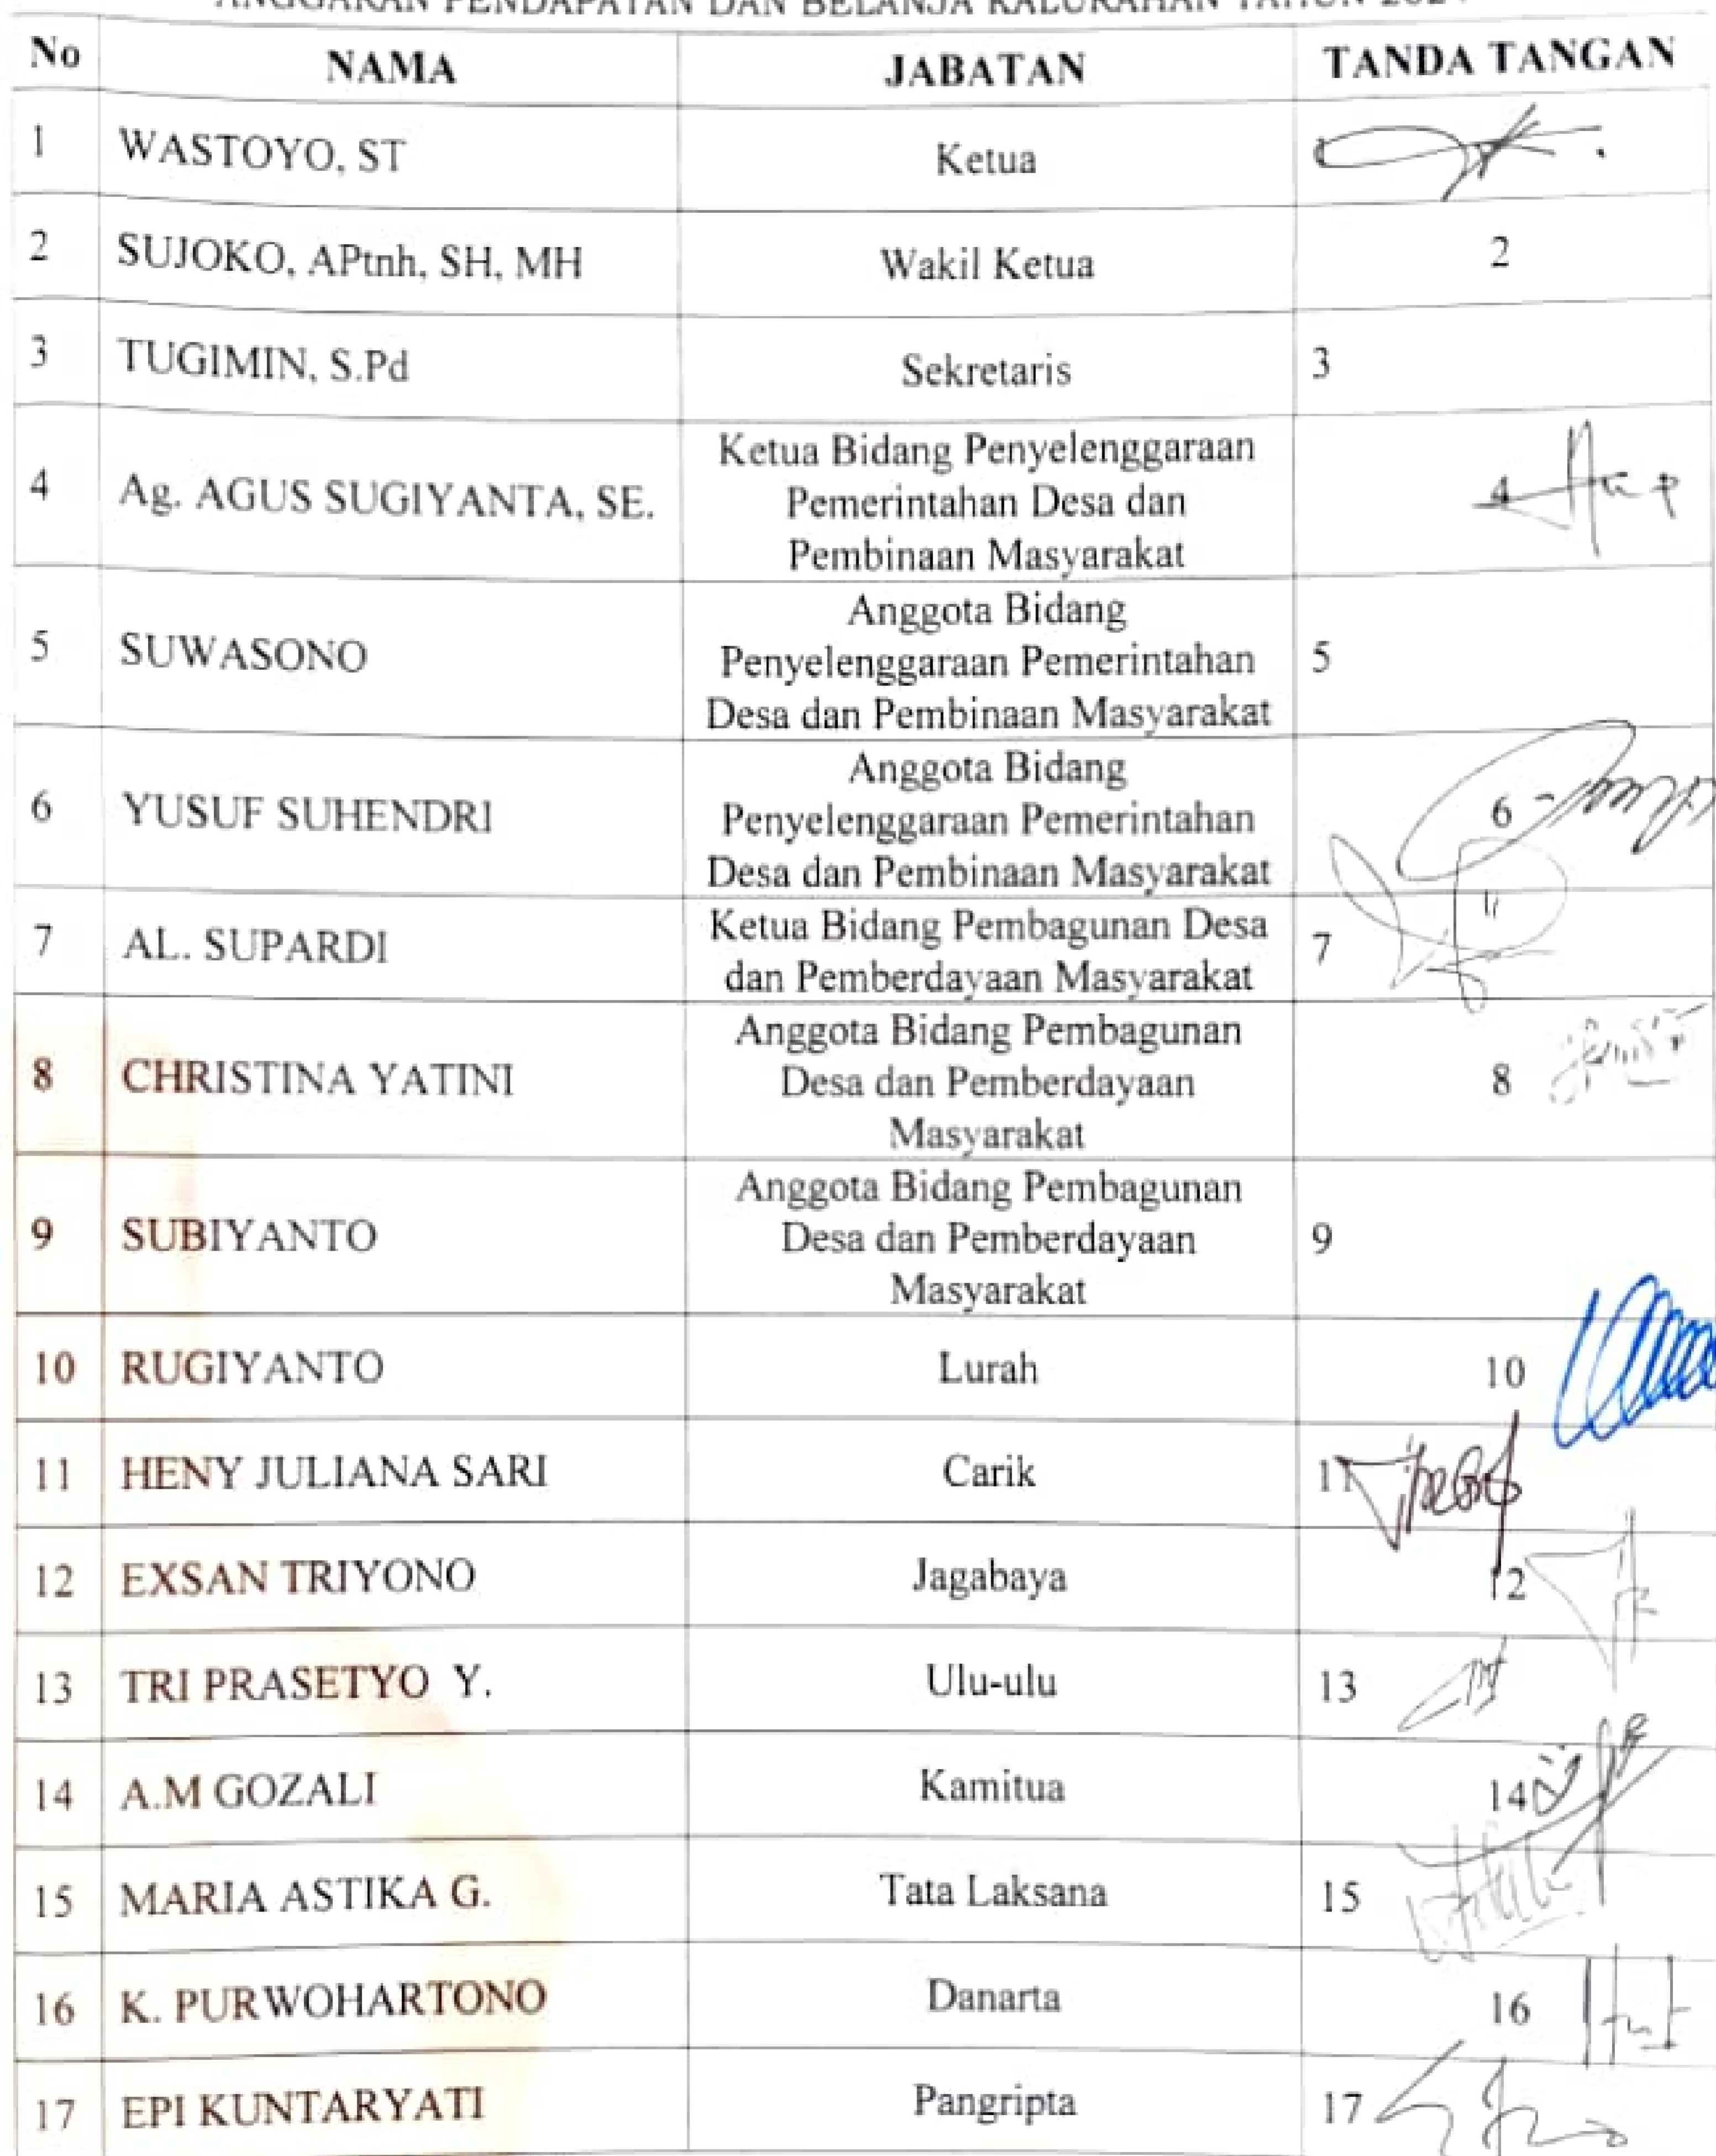 ANGGARAN PENDAPATAN DAN BELANJA KALURAHAN TAHUN
No NAMA JABATAN TANDA TANGAN
1 WASTOYO, ST Ketua 1
2 SUJOKO, APtnh, SH, MH Wakil Ketua 2
3 TUGIMIN, S.Pd Sekretaris 3
4 Ag. AGUS SUGIYANTA, SE. Ketua Bidang Penyelenggaraan
Pemerintahan Desa dan
Pembinaan Masyarakat
4
5 SUWASONO Anggota Bidang
Penyelenggaraan Pemerintahan
Desa dan Pembinaan Masyarakat
5
6 YUSUF SUHENDRI Anggota Bidang
Penyelenggaraan Pemerintahan
Desa dan Pembinaan Masyarakat
6
7 AL. SUPARDI Ketua Bidang Pembagunan Desa
dan Pemberdayaan Masyarakat
7
8 CHRISTINA YATINI Anggota Bidang Pembagunan
Desa dan Pemberdayaan
Masyarakat
8
9 SUBIYANTO Anggota Bidang Pembagunan
Desa dan Pemberdayaan
Masyarakat
9
10 RUGIYANTO Lurah 10
11 HENY JULIANA SARI Carik 11
12 EXSAN TRIYONO Jagabaya 12
13 TRI PRASETYO Y. Ulu-ulu 13
14 A.M GOZALI Kamitua 14
15 MARIA ASTIKA G. Tata Laksana 15
16 K. PURWOHARTONO Danarta 16
17 EPI KUNTARYATI Pangripta 17